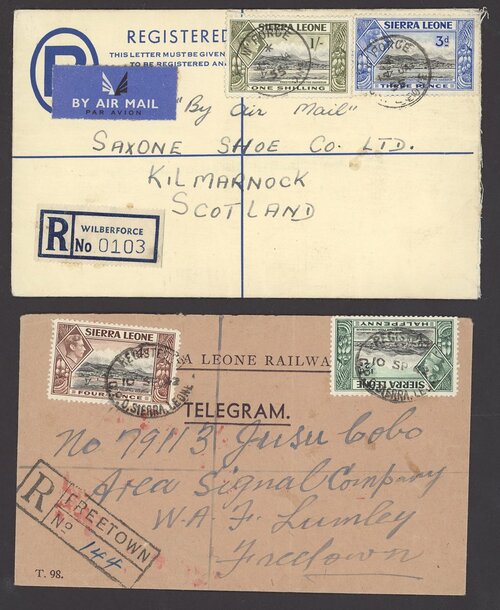 REGISTERED
THIS LETTER MUST BE GIVEN
TO BE REGISTERED
SIERRA LEONE
1/-
ONE SHILLING
SIERRA LEONE
3d
THREE PENCE
BY AIR MAIL
PAR AVION
"By Air Mail"
SAXONE SHOE CO. LTD.
KILMARNOCK
SCOTLAND
R
WILBERFORCE
No 0103
SIERRA LEONE
FOUR PENCE
SIERRA LEONE
HALFPENNY
RA LEONE RAILWA
TELEGRAM.
No 79113 Jusu Cobo
Area Signal Company
W.A.F. Lumley
Freetown
R
FREETOWN
No 144
T. 98.